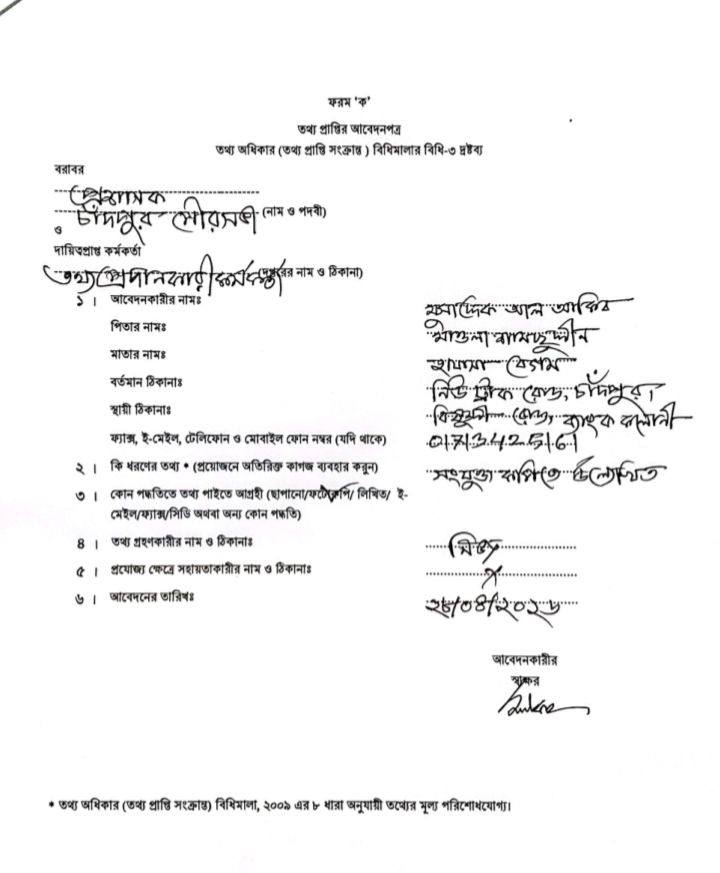 ফরম 'ক'
তথ্য প্রাপ্তির আবেদনপত্র
তথ্য অধিকার (তথ্য প্রাপ্তি সংক্রান্ত ) বিধিমালার বিধি-৩ দ্রষ্টব্য
বরাবর
প্রশাসক
চাঁদপুর পৌরসভা (নাম ও পদবী)
ও
দায়িত্বপ্রাপ্ত কর্মকর্তা
তথ্য প্রদানকারী কর্মকর্তা (দপ্তরের নাম ও ঠিকানা)
১ । আবেদনকারীর নামঃ মুসাদ্দেক আল আকিব
পিতার নামঃ মাওলানা শামছুদ্দীন
মাতার নামঃ বেগম
বর্তমান ঠিকানাঃ নিউ ট্রাক রোড, চাঁদপুর।
স্থায়ী ঠিকানাঃ রোড, ব্যাংক কলোনী
ফ্যাক্স, ই-মেইল, টেলিফোন ও মোবাইল ফোন নম্বর (যদি থাকে)
২ । কি ধরণের তথ্য * (প্রয়োজনে অতিরিক্ত কাগজ ব্যবহার করুন) সংযুক্ত কপিতে উল্লেখিত
৩ । কোন পদ্ধতিতে তথ্য পাইতে আগ্রহী (ছাপানো/ফটোকপি/ লিখিত/ ই-
মেইল/ফ্যাক্স/সিডি অথবা অন্য কোন পদ্ধতি)
৪ । তথ্য গ্রহণকারীর নাম ও ঠিকানাঃ নিজ
৫ । প্রযোজ্য ক্ষেত্রে সহায়তাকারীর নাম ও ঠিকানাঃ
৬ । আবেদনের তারিখঃ ২৮/০৪/২০২৬
আবেদনকারীর
স্বাক্ষর
* তথ্য অধিকার (তথ্য প্রাপ্তি সংক্রান্ত) বিধিমালা, ২০০৯ এর ৮ ধারা অনুযায়ী তথ্যের মূল্য পরিশোধযোগ্য।